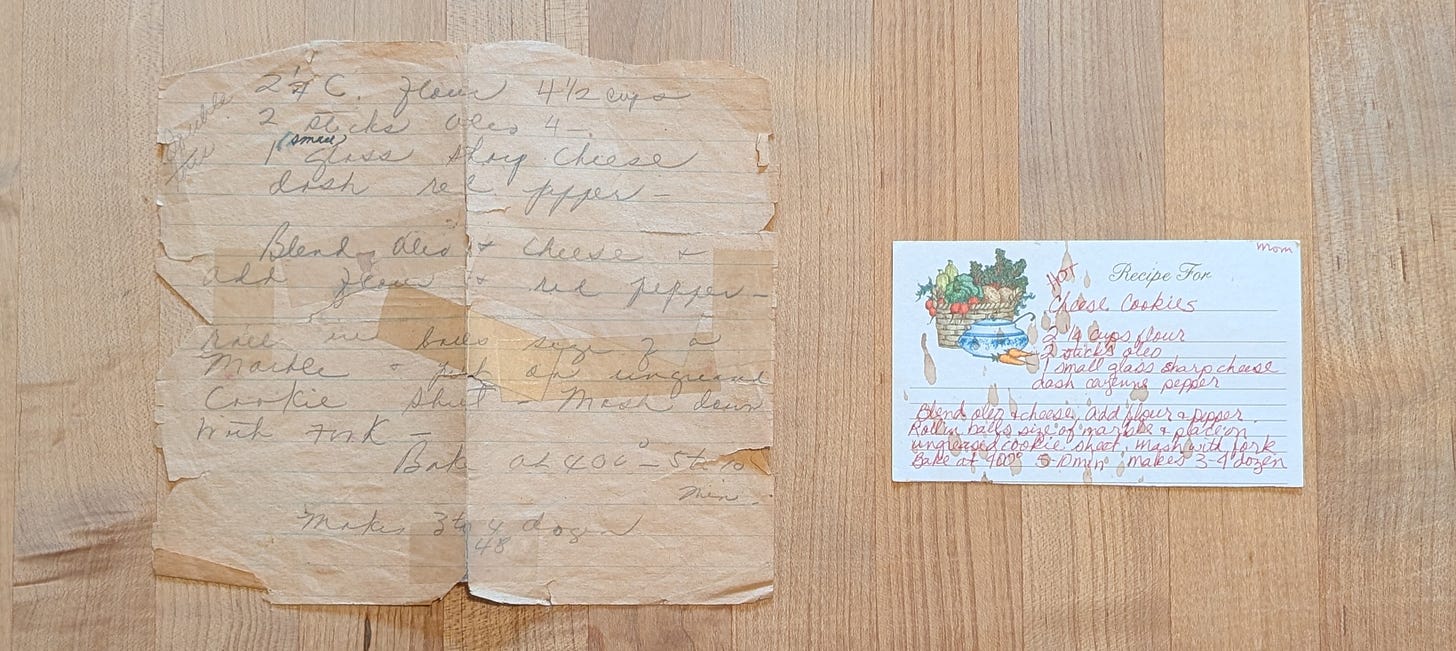 2 1/4 C. flour 4 1/2 cups
Double
2 sticks oleo 4 –
small
1 glass sharp cheese
dash red pepper –
Blend oleo & cheese &
add flour & red pepper –
roll in balls size of a
Marble & put on ungreased
Cookie sheet – Mash down
with fork –
Bake at 400° – 5 to 10
min
Makes 3 to 4 dozen
48
Mom
Hot
Recipe For
Cheese Cookies
2 1/4 cups flour
2 sticks oleo
1 small glass sharp cheese
dash cayenne pepper
Blend oleo & cheese, add flour & pepper
Roll in balls size of marble & place on
ungreased cookie sheet. Mash with fork
Bake at 400° 5-10 min makes 3-4 dozen